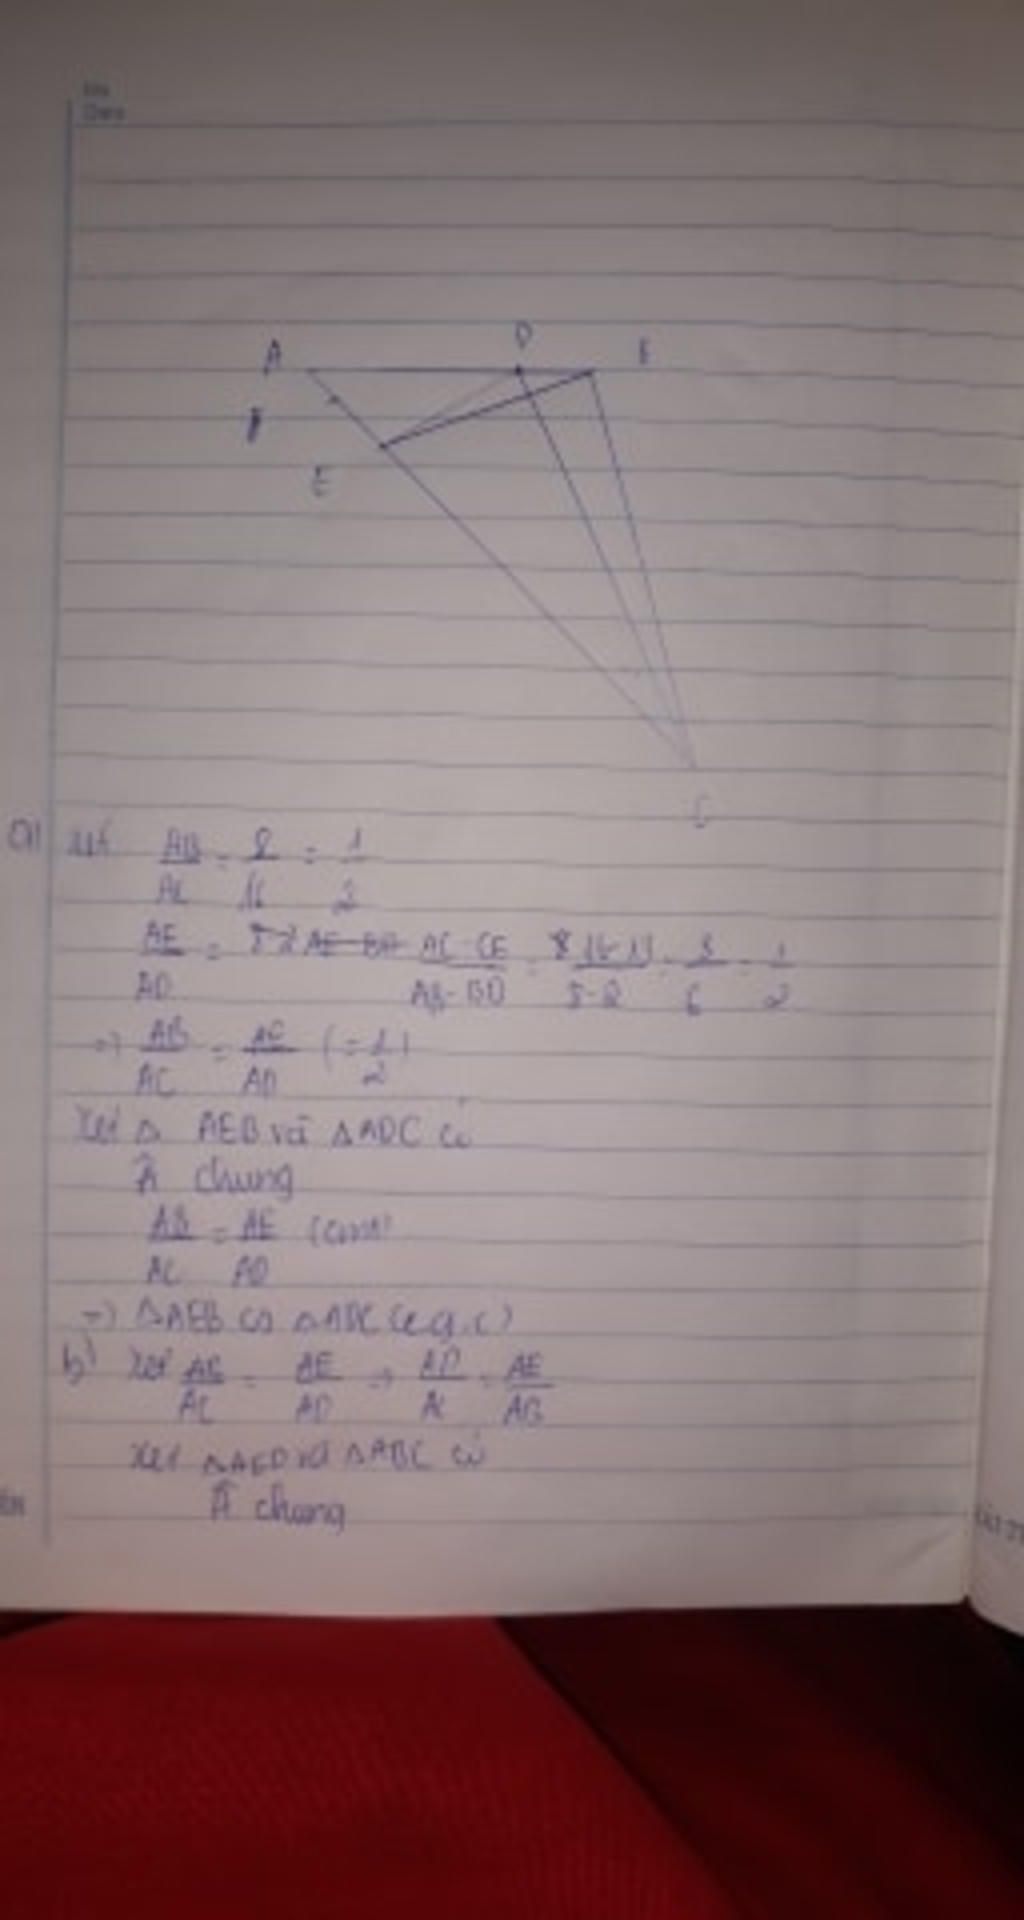 A D
E
C
a) Xét AB/AC = 8/16 = 1/2
AE/AD = AC - CE / AB - BD = 3/6 = 1/2
=> AB/AC = AE/AD (= 1/2)
Xét Δ AEB và Δ ADC có
Â chung
AB/AC = AE/AD (cmt)
=> ΔAEB ∽ ΔADC (c.g.c)
b) Xét AB/AC = AE/AD => AD/AC = AE/AB
Xét ΔAED và ΔABC có
Â chung